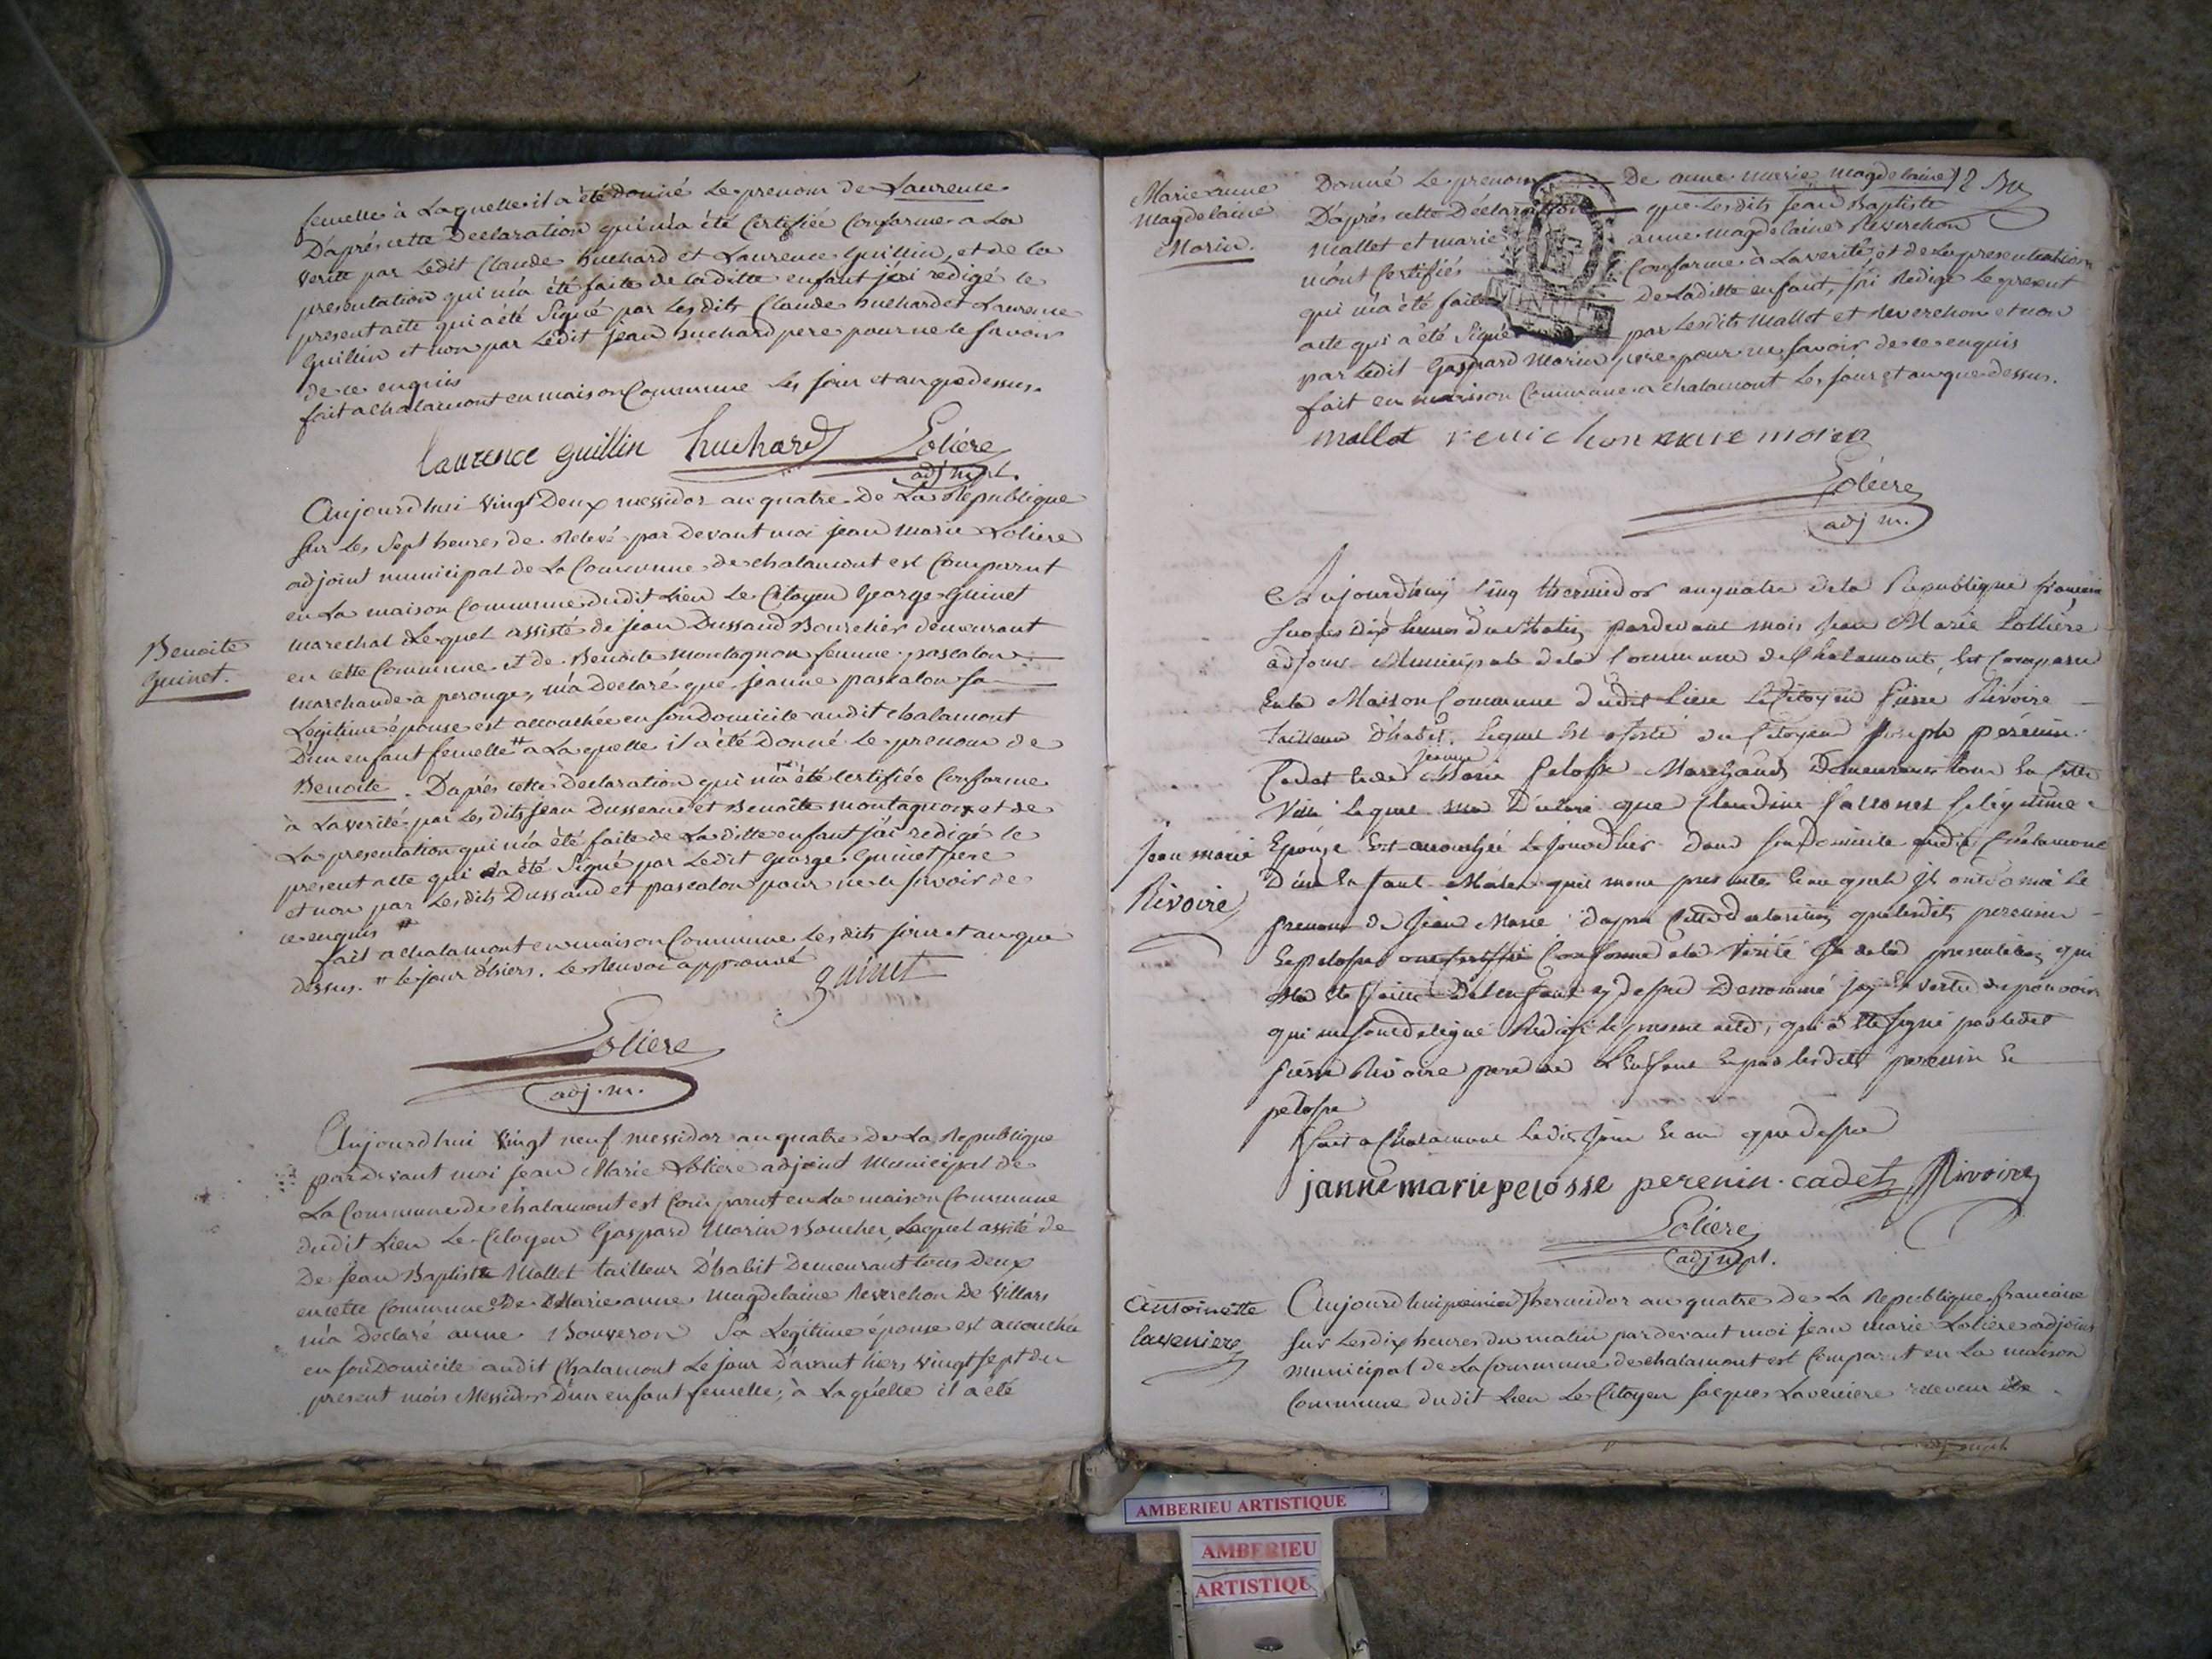 femelle à Laquelle il a été donné Le prenom de Laurence
D'après cette Declaration qui m'a été Certifiée Conforme a La
verité par Ledit Claude huchard et Laurence Guillin, et de la
presentation qui m'a été faite de laditte enfant j'ai redigé le
present acte qui a été Signé par Lesdits Claude huchard et Laurence
Guillin et non par Ledit jean huchard pere pour ne le savoir
de ce enquis
fait a chalamont en maison Commune Les jour et an que dessus.
laurence guillin huchard Loliere
adj mpl.
Aujourdhui vingt Deux messidor an quatre De La Republique
Sur les Sept heures de Relevé par Devant moi jean marie Loliere
adjoint municipal de La Commune de chalamont est Comparut
en La maison Commune dudit Lieu Le Citoyen George Guinet
marechal Lequel assisté de jean Dussaud Bourelier demeurant
en cette Commune et de Benoite montagnon femme pascalon
marchande a perouge, m'a Declaré que jeanne pascalon sa
Legitime épouse est accouchée en son Domicile audit chalamont
D'un enfant femelle # a Laquelle il a été Donné Le prenom de
Benoite. D'après cette declaration qui m'a été certifiée Conforme
à La verité par Les dits jean Dusseaud et Benoîte montagnon et de
La presentation qui m'a été faite de Laditte enfant j'ai redigé le
present acte qui a été Signé par Ledit George Guinet pere
et non par Lesdits Dussaud et pascalon pour ne le savoir de
ce enquis #
fait a chalamont en maison Commune Les dits jour et an que
dessus. # le jour d'hiers. Le Renvoi approuvé
guinet
Benoite
Guinet.
Loliere
adj. m.
Aujourdhui vingt neuf messidor an quatre De La Republique
par devant moi jean Marie Loliere adjoint Municipal de
La Commune de chalamont est Comparut en La maison Commune
dudit Lieu Le Citoyen Gaspard Morin Boucher, Lequel assité de
De jean Baptiste Mallet tailleur D'habit Demeurant tous Deux
en cette Commune De Marie anne Magdelaine Reverchon De Villars
m'a Declaré anne Bouveron Sa Legitime épouse est accouchée
en son Domicile audit Chalamont Le jour D'avant hiers vingt sept du
present mois Messidor D'un enfant femelle, à Laquelle il a été
Marie anne
Magdelaine
Morin.
Donné Le prenom De anne marie magdelaine
D'après cette Declaration que Lesdits jean Baptiste
Mallet et marie anne magdelaine Reverchon
m'ont Certifiés Conforme à La verité, et de La presentation
qui m'a été faite De Laditte enfant, j'ai Redigé Le present
acte qui a été Signé par Lesdits Mallet et Reverchon et non
par Ledit Gaspard Morin pere pour ne savoir de ce enquis
fait en maison Commune a chalamont Les jour et an que dessus.
mallet revichon marie
Loliere
adj m.
Aujourdhuy Cinq thermidor an quatre de la Republique
heures du Matin pardevant mois jean Marie Lolliere
adjoint Municipale de la Commune de Chalamont, Est Comparu
En la Maison Commune dudit Lieu Le Citoyen Pierre Rivoire
Tailleur D'habit, Lequel Est assisté du Citoyen Joseph perenin
Cadet Et de jeanne Marie Pelosse Marchands Demeurants tous En Cette
Ville Lequel ma Déclaré que Claudine Sa légitime
Epouse Est accouchée Le jourdhier Dans son Domicile audit Chalamont
D'un Enfant Male quil mont presentes Et auquel Ils ont donné Le
prenom De Jean Marie D'apres Cette declaration que lesdits perenin
Et pelosse ont certiffié Conforme a la Verité Et de la presentation qui
Ma Ete faitte De Lenfant cy dessus Denommé jay En vertu du pouvoir
qui me sont delegué Redigé le present acte, qui a Ete signé par ledit
Pierre Rivoire pere de L'Enfant Et par lesdits perenin Et
pelosse
fait a Chalamont Ledit jour Et an que dessus
Jean marie
Rivoire
janne marie pelosse perenin cadet Rivoire
Loliere
adj mpl.
Antoinette
Laveniere
Aujourdhui premier thermidor an quatre De La Republique francaise
Sur Les dix heures du matin pardevant moi jean marie Loliere adjoint
municipal de La Commune de chalamont est Comparut en La maison
Commune dudit Lieu Le Citoyen jacques Laveniere
AMBERIEU ARTISTIQUE
AMBERIEU
ARTISTIQU